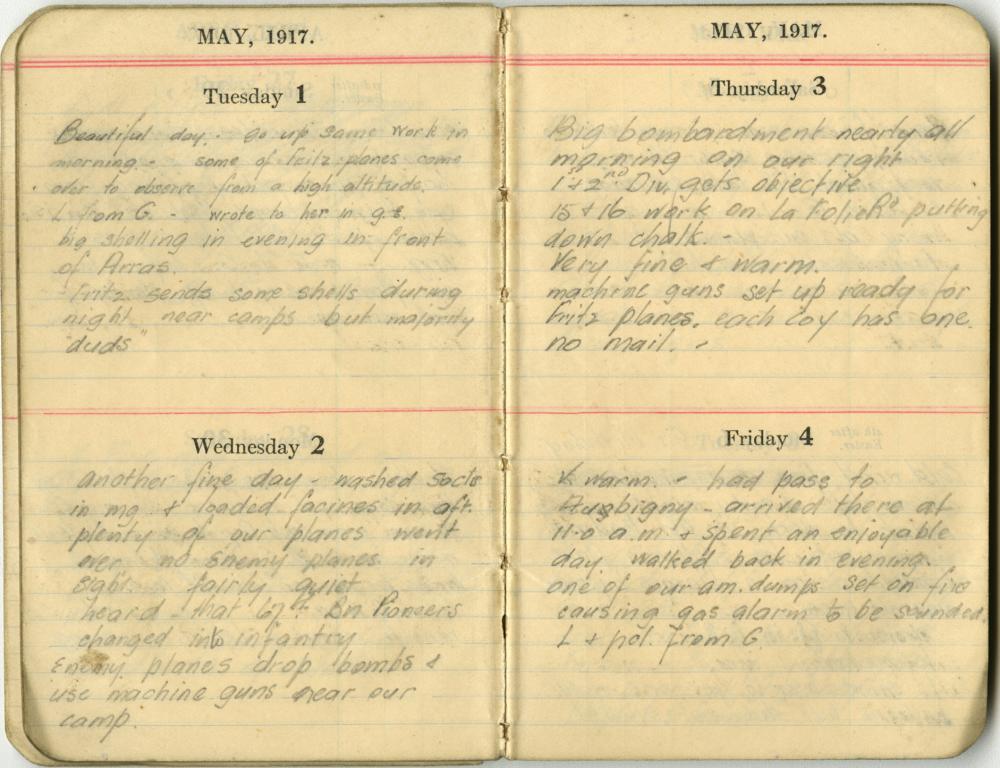 MAY, 1917.
Tuesday 1
Beautiful day. go up same work in
morning - some of Fritz planes come
over to observe from a high altitude.
L from G. - wrote to her in g.e.
big shelling in evening in front
of Arras.
Fritz sends some shells during
night near camps but majority
"duds"
Wednesday 2
another fine day - washed socks
in mg & loaded facines in aft.
plenty of our planes went
over no enemy planes in
sight. fairly quiet
heard - that 67th Bn Pioneers
changed into infantry
Enemy planes drop bombs &
use machine guns near our
camp.
MAY, 1917.
Thursday 3
Big bombardment nearly all
morning on our right
1st & 2nd Div. gets objective
15 & 16 work on La Folie Rd putting
down chalk. -
Very fine & warm.
machine guns set up ready for
Fritz planes. each Coy has one.
no mail. -
Friday 4
4th after
Easter.
V. warm. - had pass to
Aubigny - arrived there at
11-0 a.m & spent an enjoyable
day. walked back in evening.
one of our am. dumps set on fire
causing gas alarm to be sounded.
L + pcl. from G.